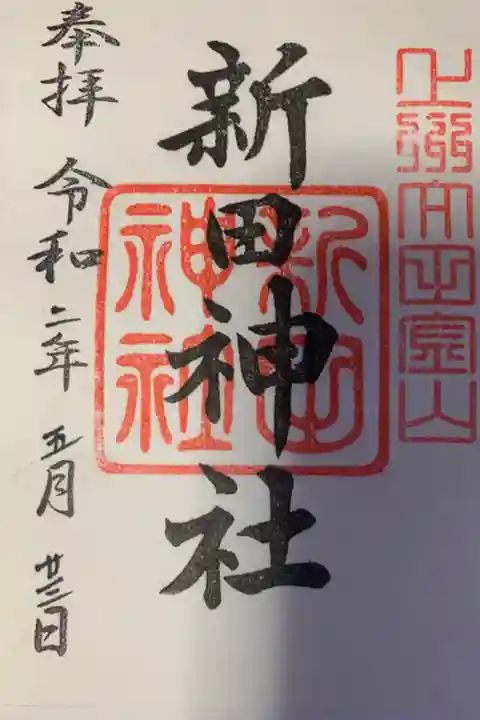 上州太田金山
新田神社
新田
神社
奉拝 令和二年 五月 廿三日